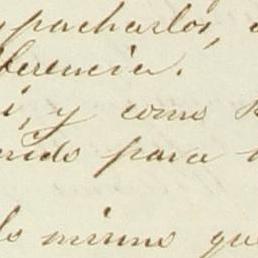 pacharlos,
ferencia.
i, y como
nido para
lo mismo que